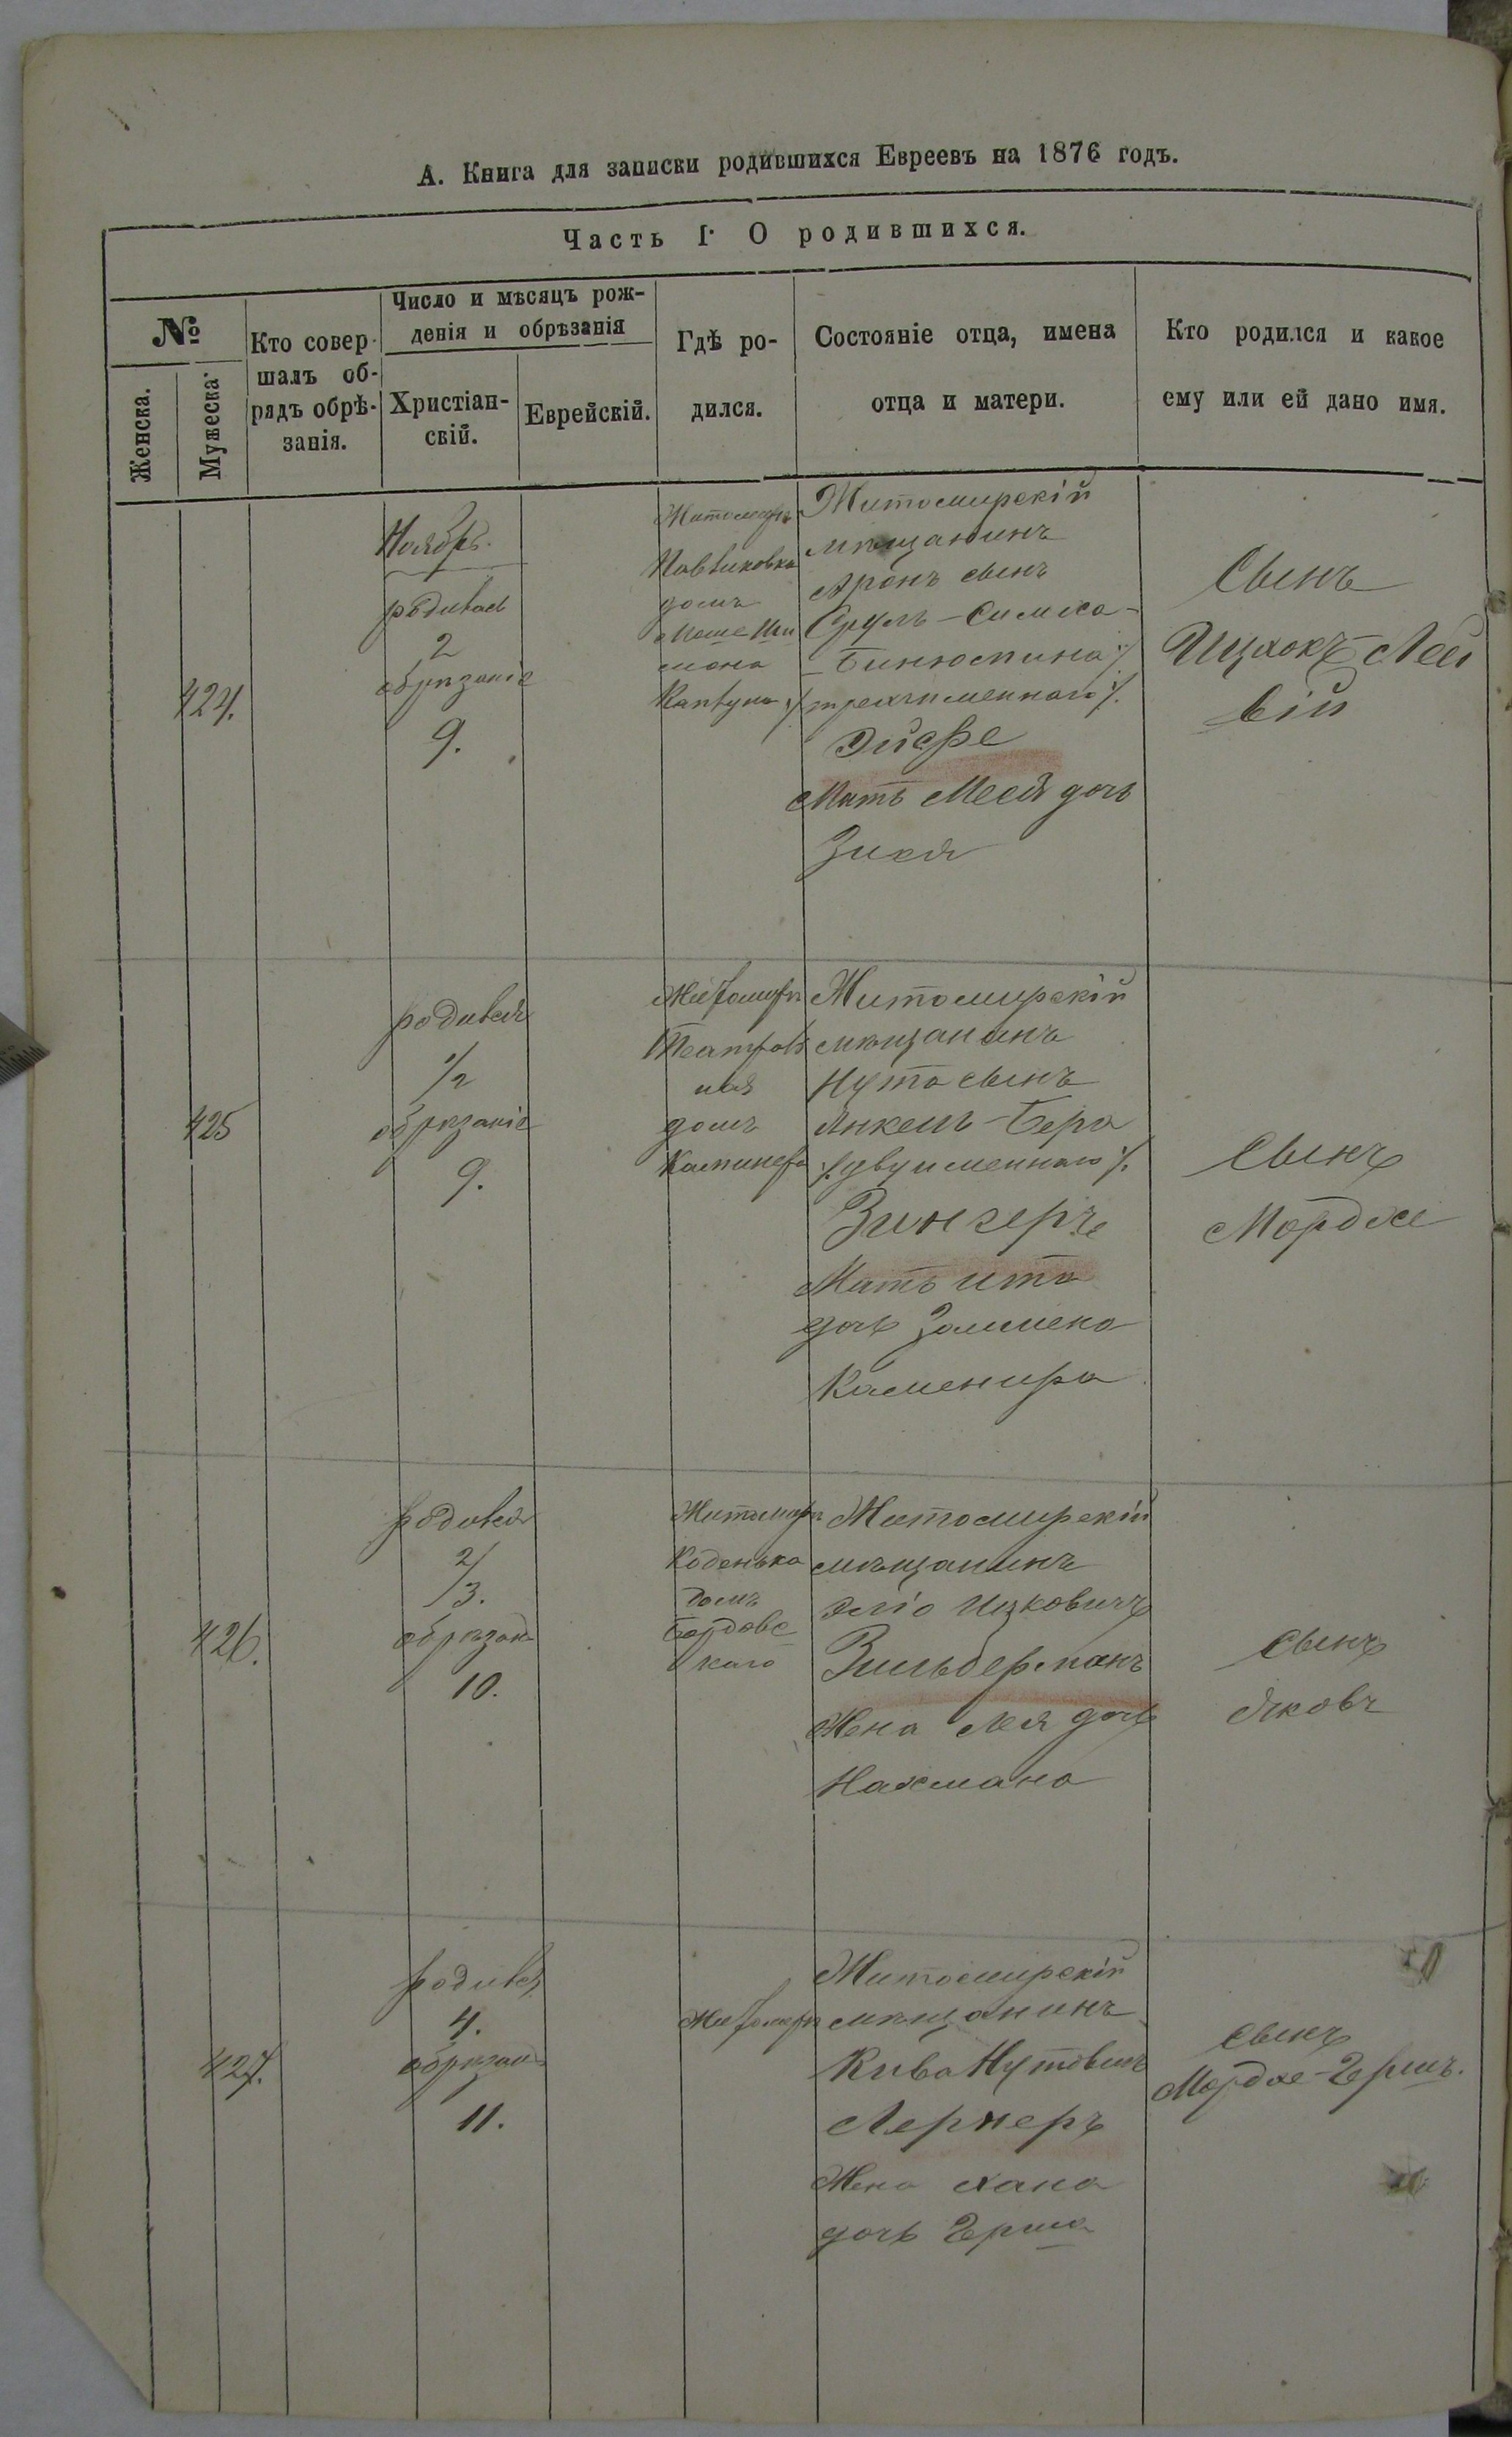 А. Книга для записки родившихся Евреевъ на 1876 годъ.
Часть I. О родившихся.
№
Женска.
Мужеска.
Кто совер-
шалъ об-
рядъ обрѣ-
занія.
Число и мѣсяцъ рож-
денія и обрѣзанія
Христіан-
скій.
Еврейскій.
Гдѣ ро-
дился.
Состояніе отца, имена
отца и матери.
Кто родился и какое
ему или ей дано имя.
424.
Ноябрь.
родился
2
обрѣзаніе
9.
Житомиръ
домъ
Житомирскій
мѣщанинъ
Аронъ сынъ
Сруль-Симха-
трехъименнаго
Эйсфе
Мать Месся дочь
Зися
Сынъ
Ицхокъ-Лей
вій
425
родился
1/2
обрѣзаніе
9.
Житомиръ
Театраль
ная
домъ
Житомирскій
мѣщанинъ
Нута сынъ
Янкель-Бера
двуименнаго
Зингеръ
Мать Ита
дочь
Каменира
Сынъ
Мордхе
426.
родился
2/3.
обрѣзан
10.
Житомиръ
Коденька
домъ
Бордовс
каго
Житомирскій
мѣщанинъ
Эліо Ицковичъ
Зильберманъ
Жена Лея дочь
Нахмана
Сынъ
Яковъ
427.
родился
4.
обрѣзан
11.
Житомиръ
Житомирскій
мѣщанинъ
Кива Нутовичъ
Лернеръ
Жена Хана
дочь Герша
Сынъ
Мордхе-Гершъ.